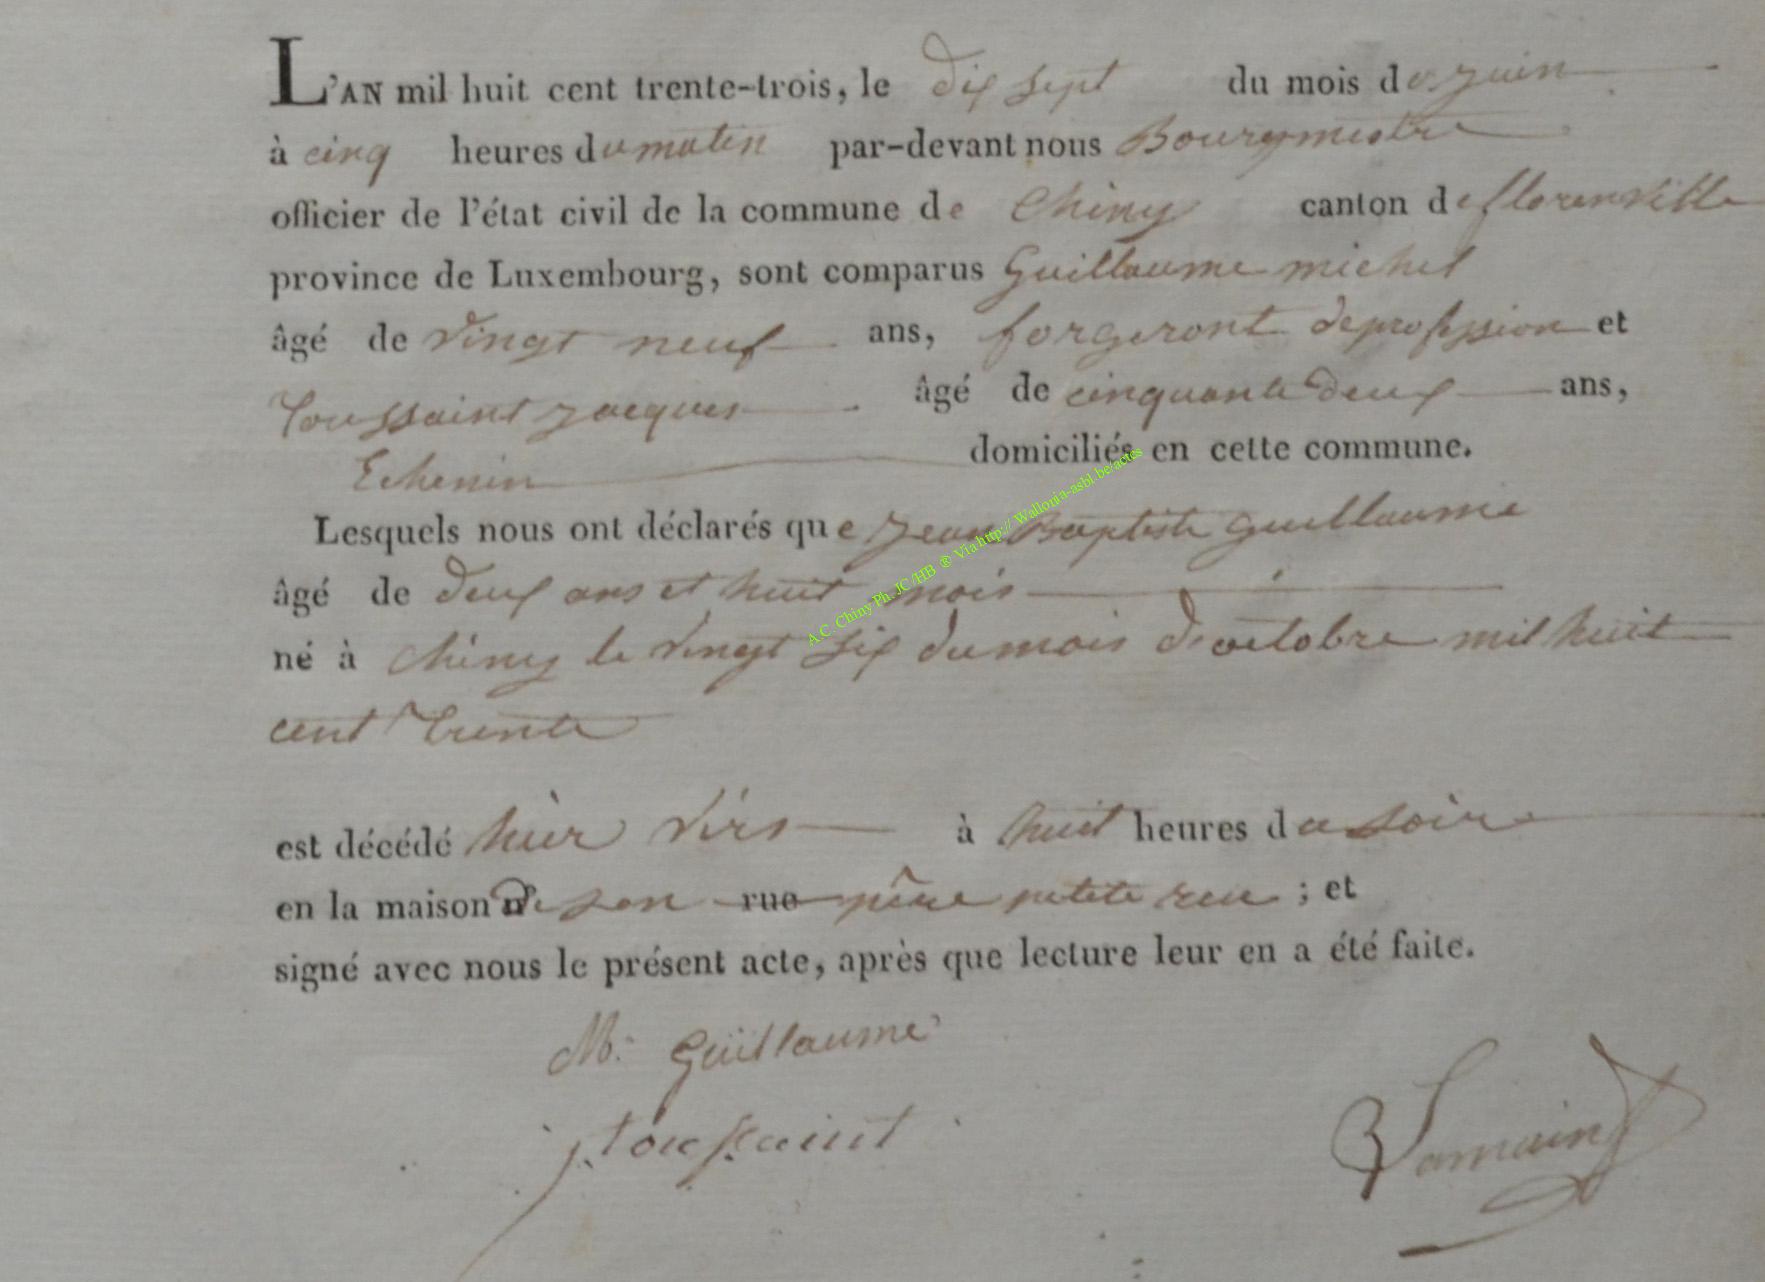 L'AN mil huit cent trente-trois, le dix sept du mois de juin
à cinq heures du matin par-devant nous Bourgmestre
officier de l'état civil de la commune de Chiny canton de florenville
province de Luxembourg, sont comparus Guillaume michel
âgé de vingt neuf ans, forgeront de profession et
Toussaint jacques âgé de cinquante deux ans,
Echenin domiciliés en cette commune.
Lesquels nous ont déclarés que jean Baptiste guillaume
âgé de deux ans et huit mois
né à chiny le vingt six du mois d'octobre mil huit
cent trente
est décédé hier vers à huit heures du soir
en la maison de son rue père petite rue ; et
signé avec nous le présent acte, après que lecture leur en a été faite.
M: Guillaume
j. toussaint
A.C. Chiny Ph. JC/HB ® Via http:// Wallonia-asbl.be/actes